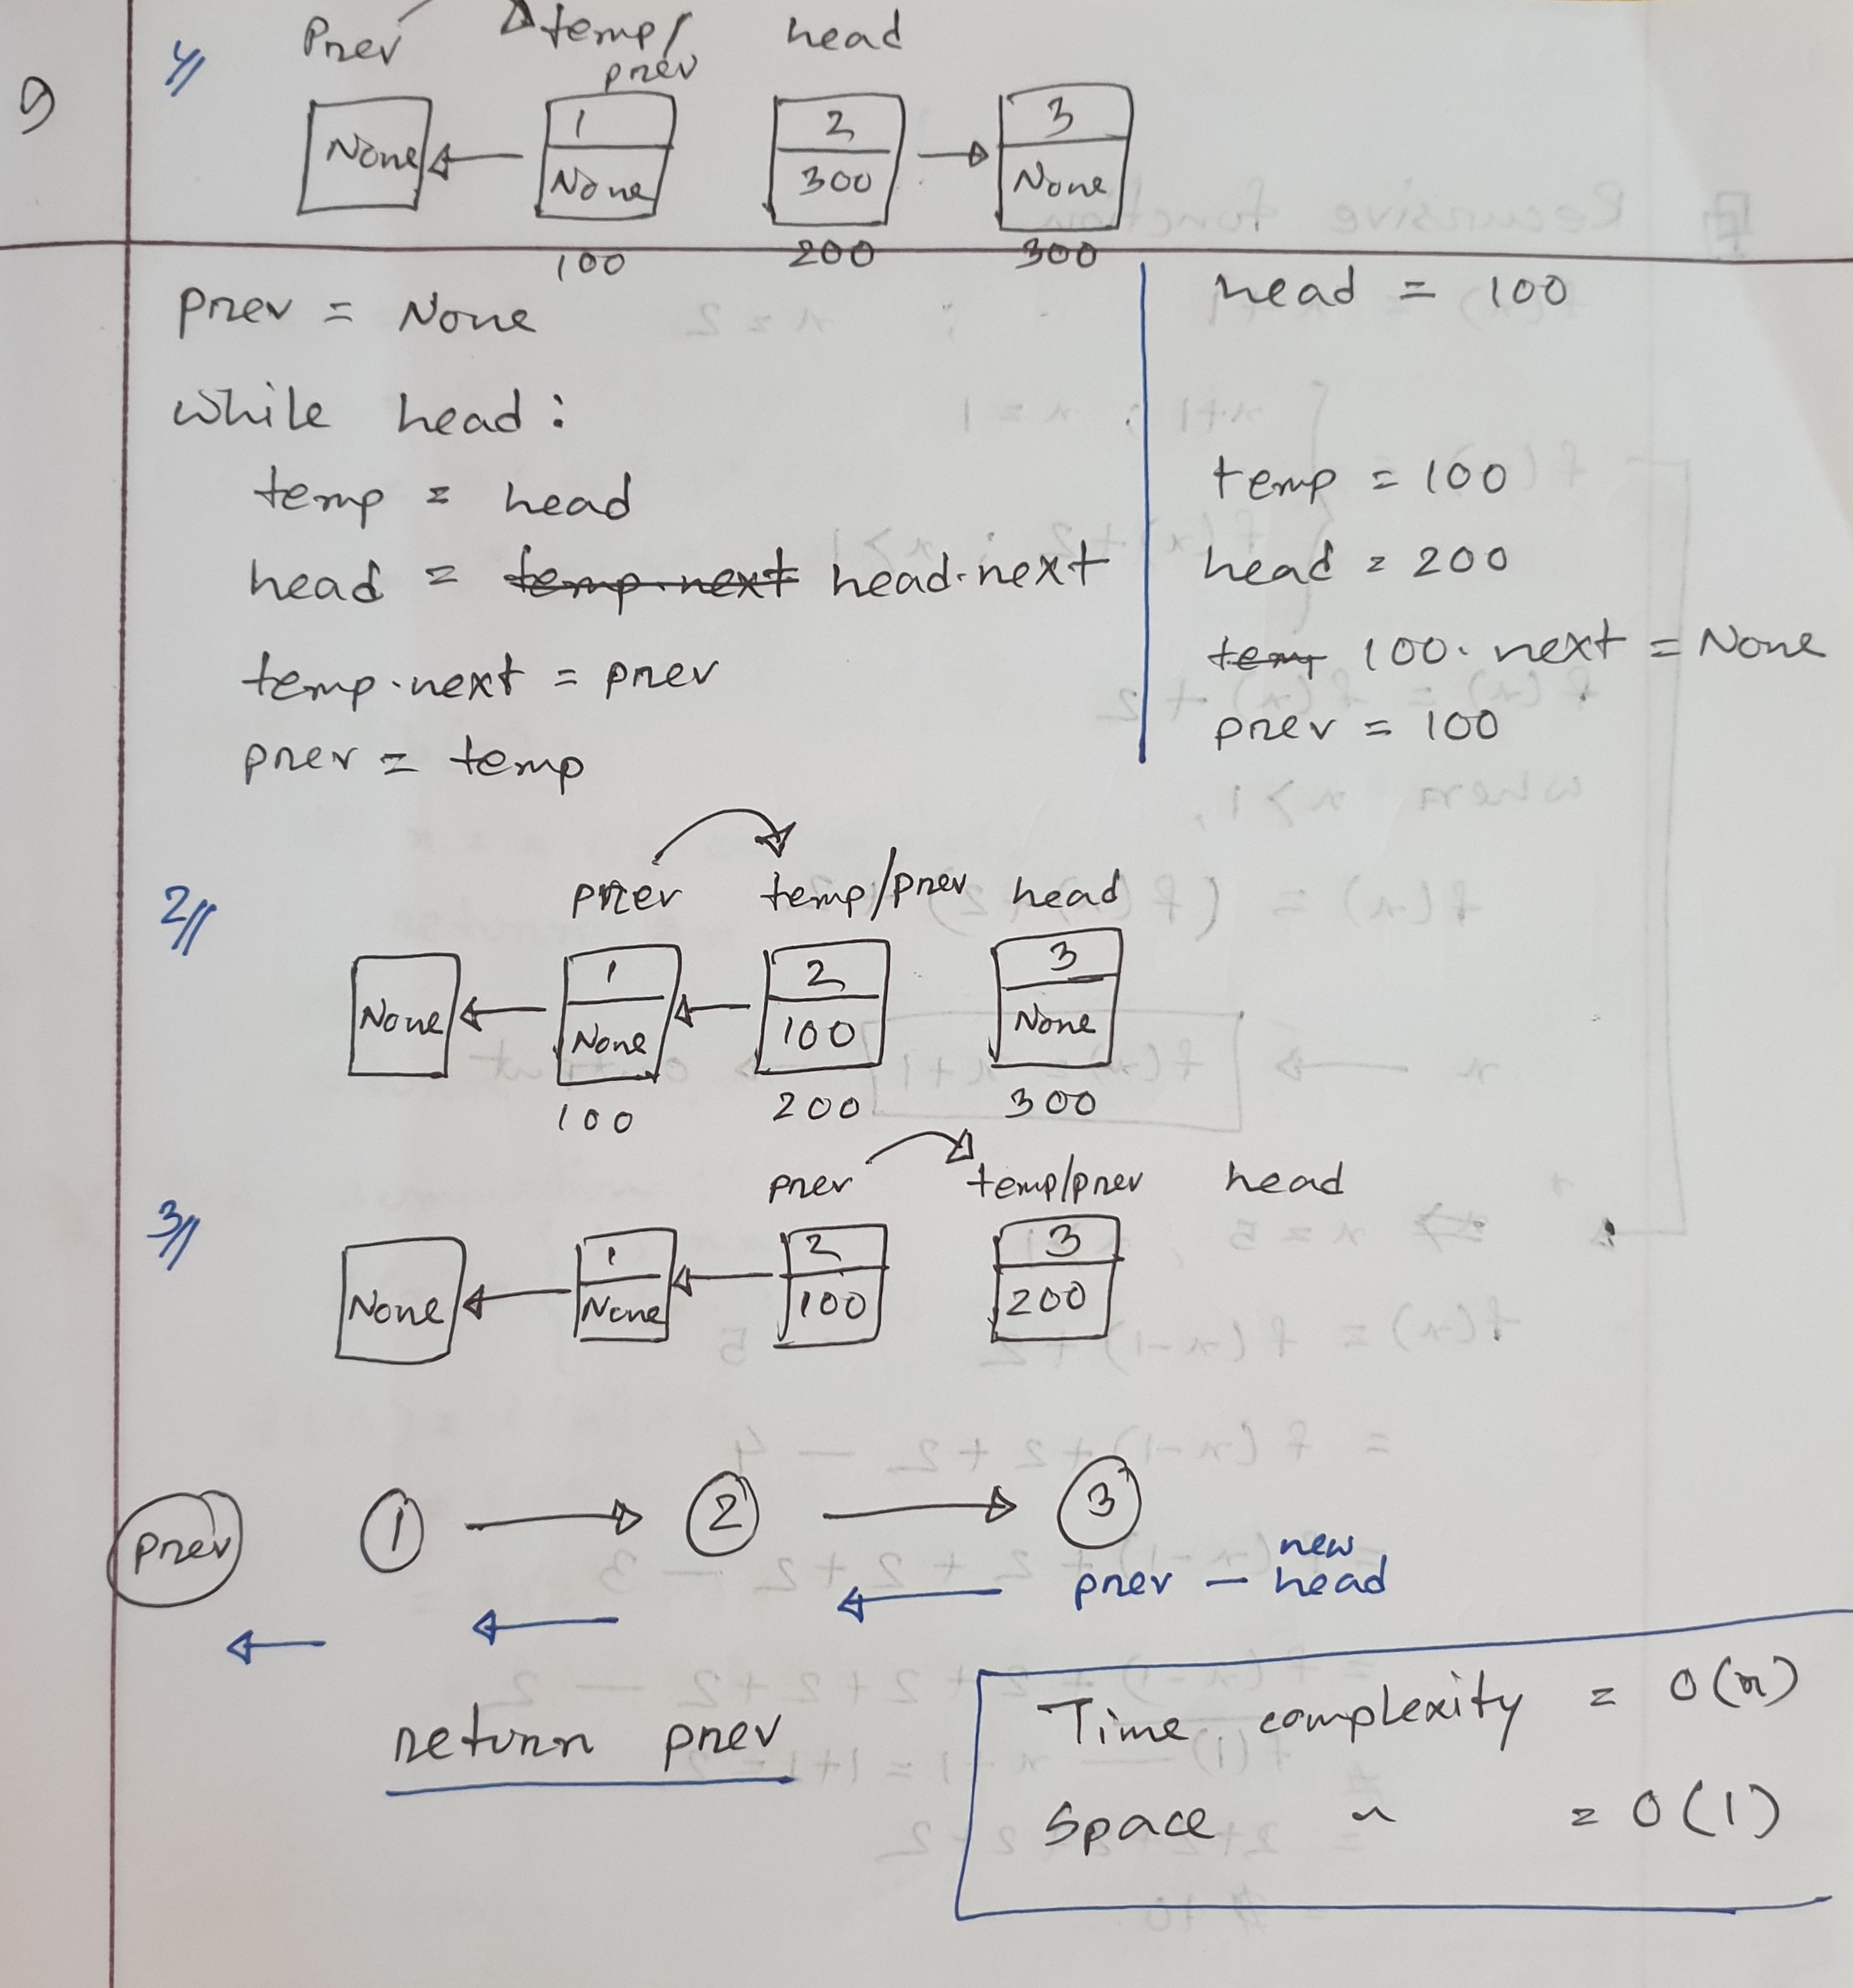 1//
Prev temp/prev head
None 1 2 3
None 300 None
100 200 300
prev = None
while head:
temp = head
head = temp.next head.next
temp.next = prev
prev = temp
head = 100
temp = 100
head = 200
temp 100.next = None
prev = 100
2//
prev temp/prev head
None 1 2 3
None 100 None
100 200 300
3//
prev temp/prev head
None 1 2 3
None 100 200
prev 1 2 3
new
prev - head
return prev
Time complexity = O(n)
Space " = O(1)